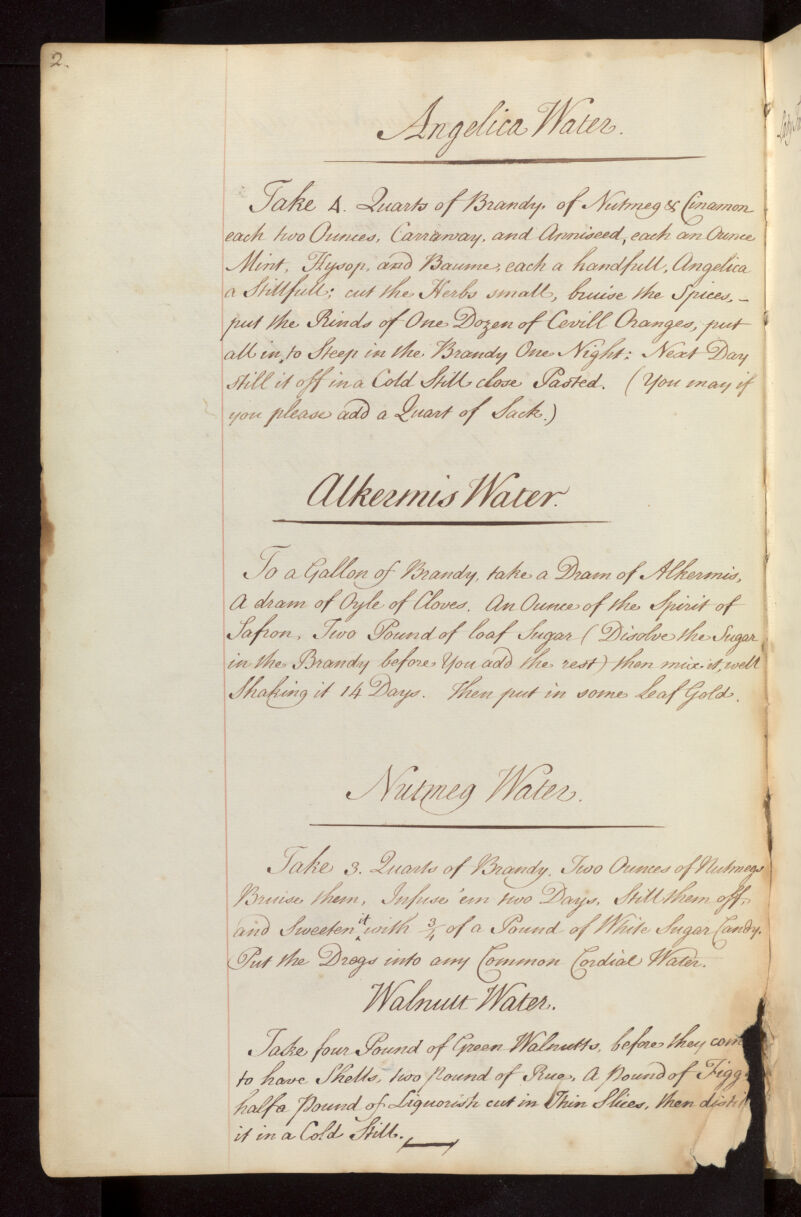 2.
Angelica Water.
Take 4. Quarts of Brandy. of Nutmeg & Cinamon
each two Ounces, Carraway, and Anniseed, each an Ounce
Mint, Hysop, and Baume, each a handfull, Angelica
a Stillfull; cut the Herbs small, bruise the Spices, –
put the Rinds of One Dozen of Cevill Oranges, put
all in, to Steep in the Brandy One Night: Next Day
still it off in a Cold Still close Pasted. (You may if
you please add a Quart of Sack.)
Alkermis Water.
To a Gallon of Brandy, take a Dram of Alkermis,
A dram of Oyle of Cloves. An Ounce of the Spirit of
Safron, Two Pound of loaf Sugar (Disolve the Sugar
in the Brandy before You add the rest) then mix it well
Shaking it 14 Days. then put in some Leaf Gold.
Nutmeg Water.
Take 3. Quarts of Brandy. Two Ounces of Nutmegs
Bruise them, Infuse 'em two Days, Still them off,
and Sweeten it with 3/4 of a Pound of White Sugar Candy.
Put the Dregs into any Common Cordial Water.
Walnutt Water.
Take four Pound of Green Walnutts, before they com
to have Shells, two pound of Rue, A pound of Figgs
half a pound of Liquorish cut in Thin Slices, then distil
it in a Cold Still.